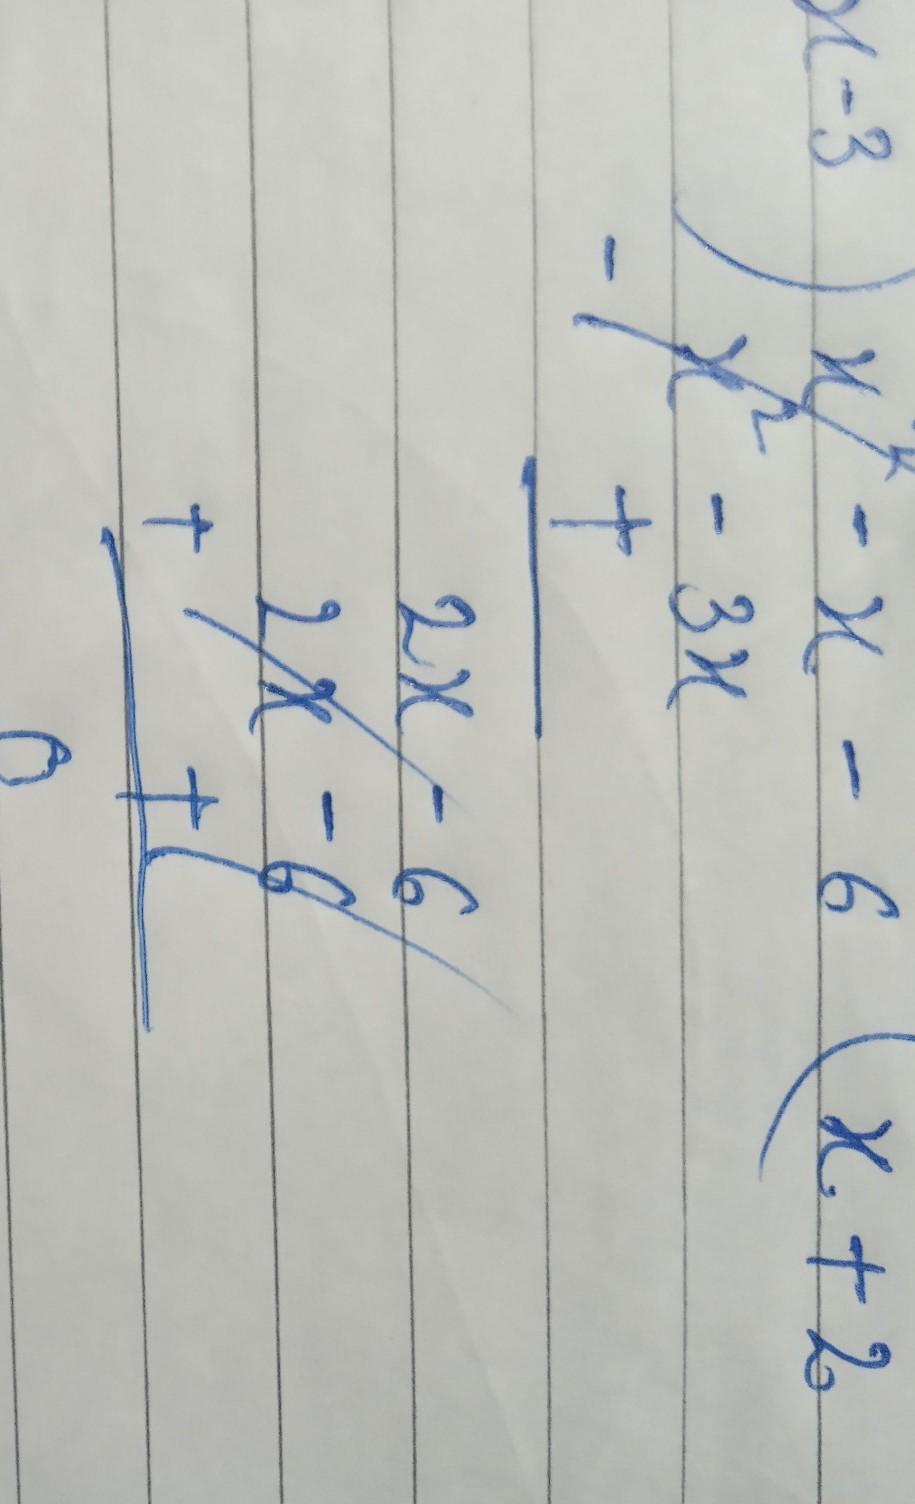 x-3 ) x² - x - 6 ( x + 2
x² - 3x
- +
2x - 6
2x - 6
+ +
0